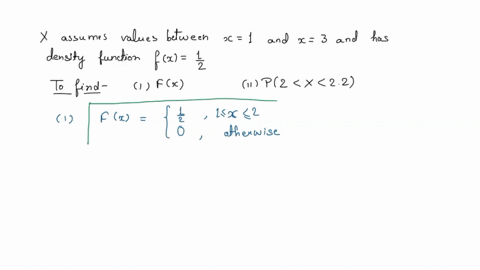 X assumes values between x = 1 and x = 3 and has
density function f(x) = 1/2
To find- (i) F(x) (ii) P(2 < X < 2.2)
(i) F(x) = { 1/2 , 1≤x≤2
0 , otherwise